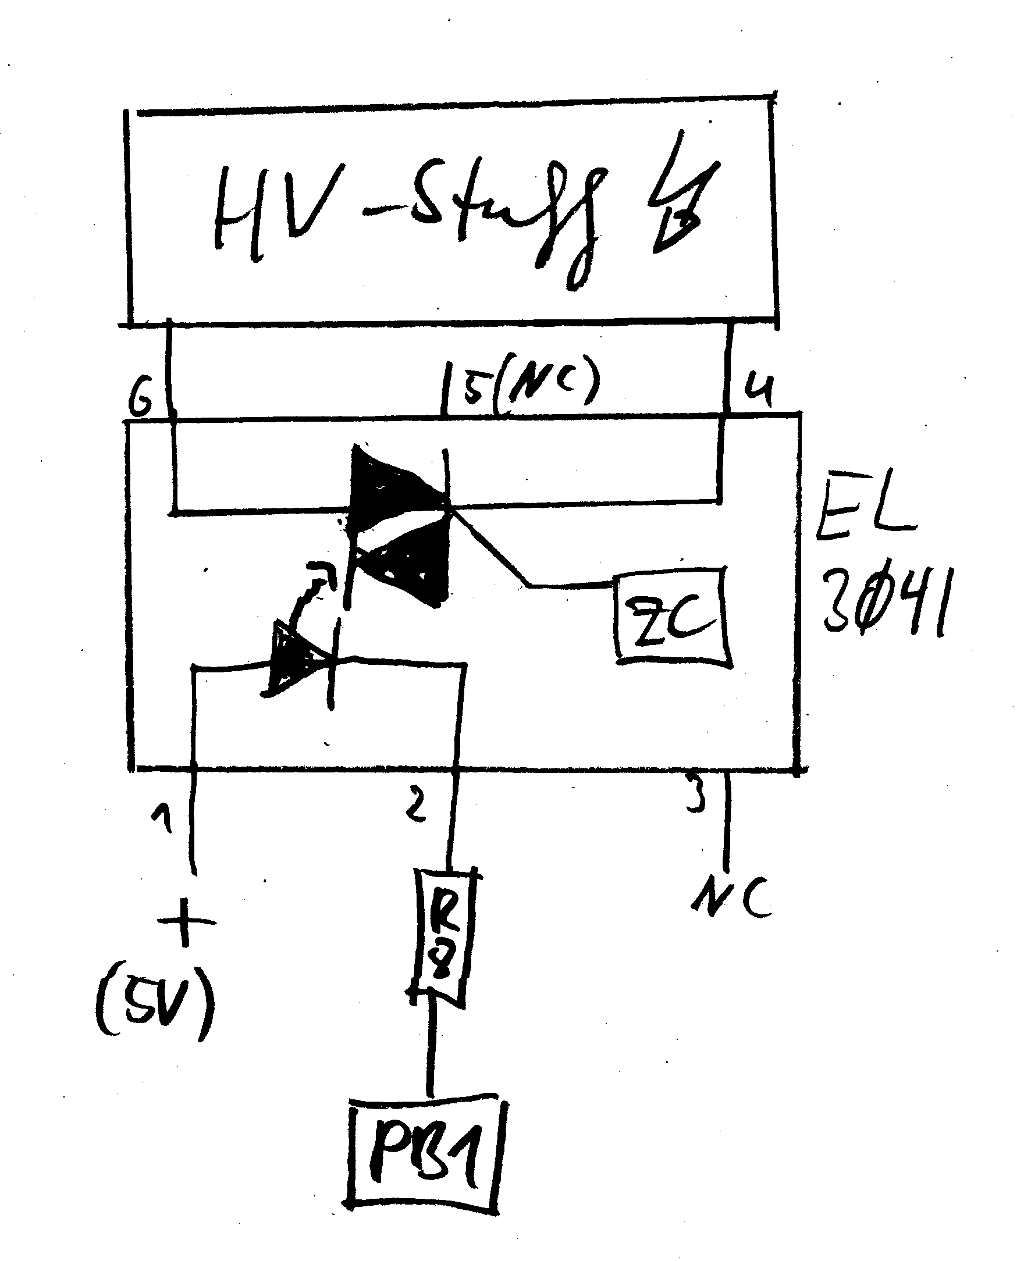 HV-Stuff
6
5(NC)
4
EL
3041
ZC
1
2
3
+
(5V)
R
8
NC
PB1